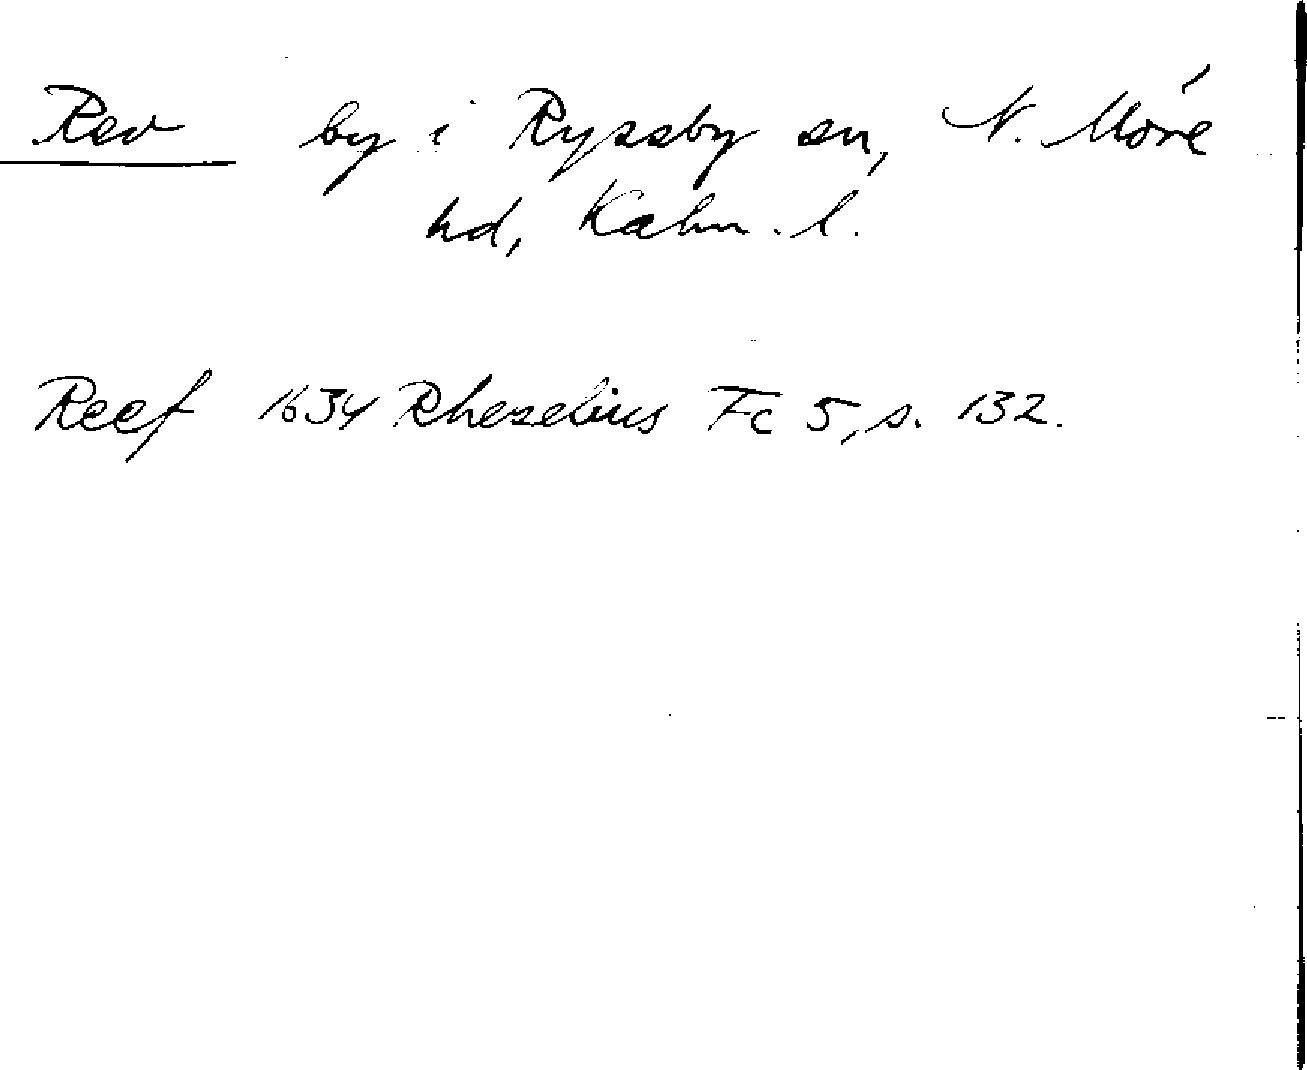 Rev by i Ryssby sn, N. Möre
hd, Kalm. l.
Reef 1634 Rhezelius Fc 5, s. 132.